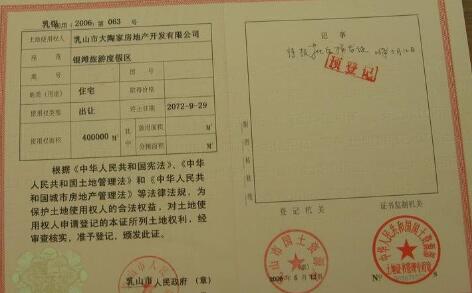 乳 国用(2006)第 063 号
土地使用权人 乳山市大陶家房地产开发有限公司
座落 银滩旅游度假区
地号 图号
地类(用途) 住宅 取得价格
使用权类型 出让 终止日期 2072-9-29
使用权面积 400000 M² 其中 独用面积 M²
分摊面积 M²
根据《中华人民共和国宪法》、《中华
人民共和国土地管理法》和《中华人民共
和国城市房地产管理法》等法律法规,为
保护土地使用权人的合法权益,对土地使
用权人申请登记的本证所列土地权利,经
审查核实,准予登记,颁发此证。
乳山市 人民政府 (章)
记事
预登记
登记机关
证书监制机关
中华人民共和国国土资源部
土地证书管理专用章